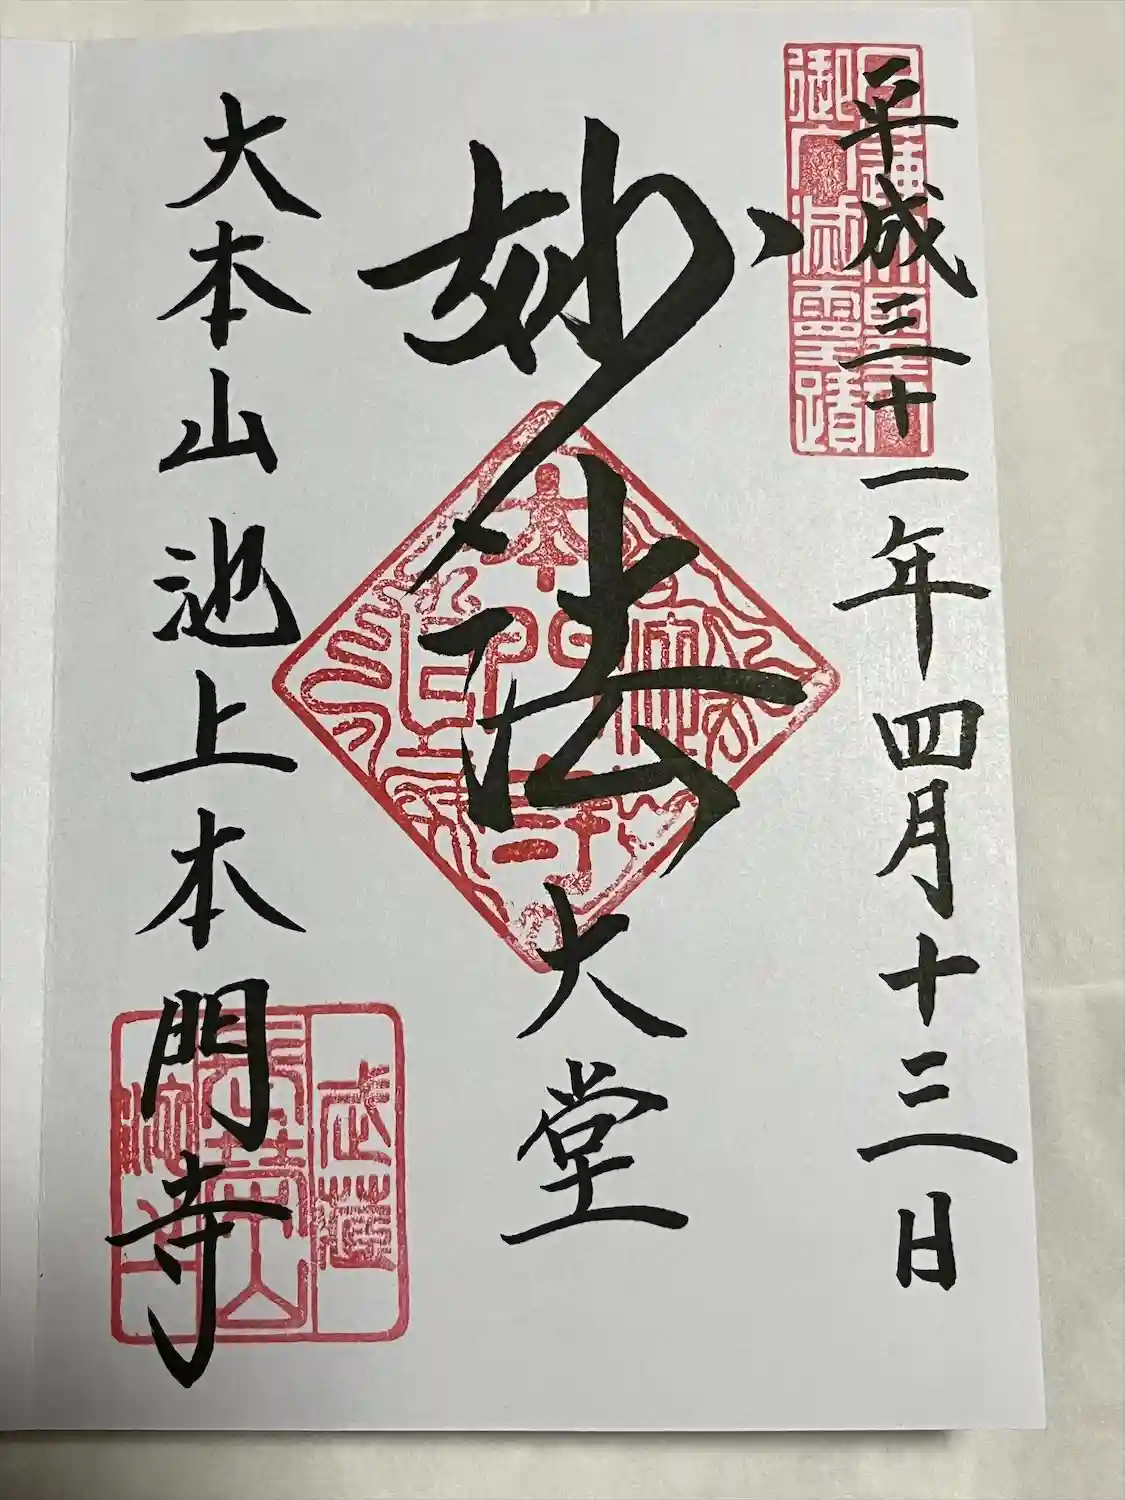 平成三十一年四月十三日
日蓮大聖人
御入滅霊蹟
妙法
大堂
本門寺
大本山池上本門寺
武蔵
長栄山
池上